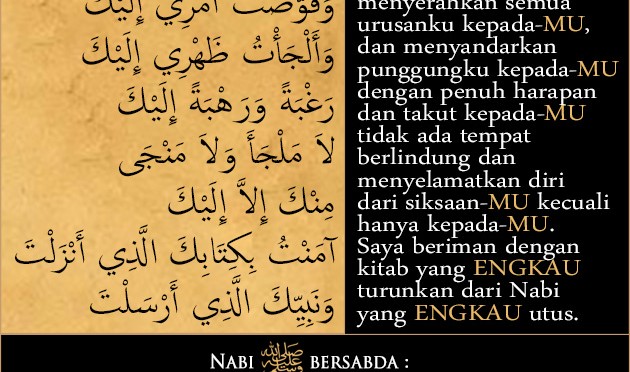 وَفَوَّضْتُ أَمْرِي إِلَيْكَ
وَأَلْجَأْتُ ظَهْرِي إِلَيْكَ
رَغْبَةً وَرَهْبَةً إِلَيْكَ
لاَ مَلْجَأَ وَلاَ مَنْجَى
مِنْكَ إِلاَّ إِلَيْكَ
آمَنْتُ بِكِتَابِكَ الَّذِي أَنْزَلْتَ
وَنَبِيِّكَ الَّذِي أَرْسَلْتَ
menyerahkan semua
urusanku kepada-MU,
dan menyandarkan
punggungku kepada-MU
dengan penuh harapan
dan takut kepada-MU
tidak ada tempat
berlindung dan
menyelamatkan diri
dari siksaan-MU kecuali
hanya kepada-MU.
Saya beriman dengan
kitab yang ENGKAU
turunkan dari Nabi
yang ENGKAU utus.
NABI ﷺ BERSABDA :